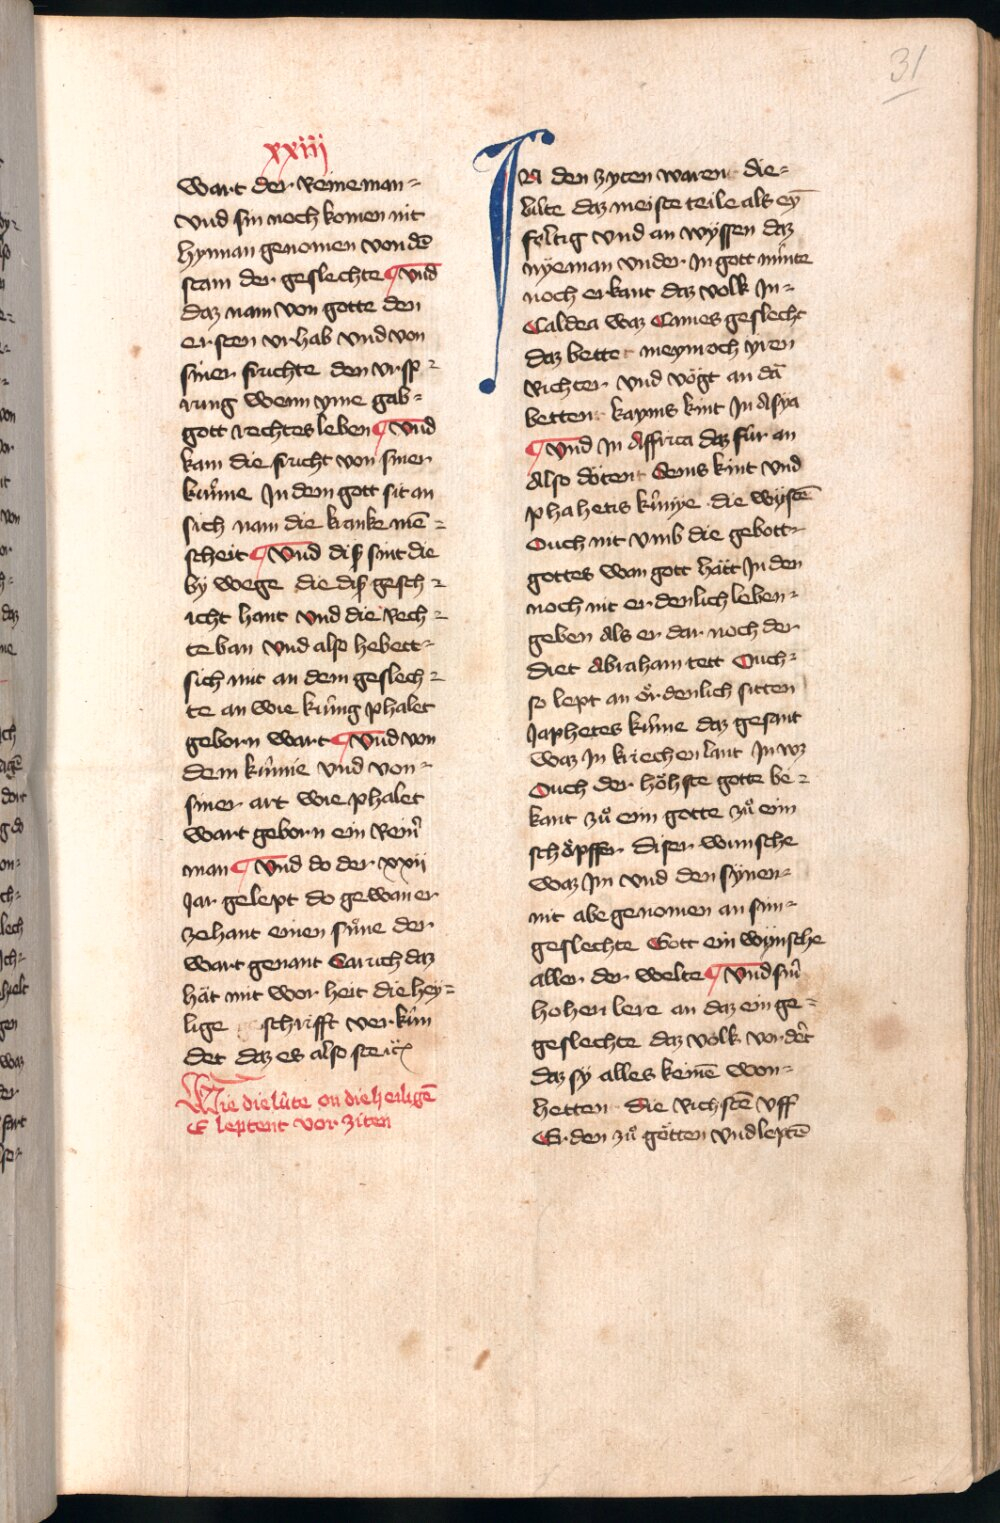 31
xxiii
wart der Reine man⸗
vnd sin noch komen nit
hynnan genomen von dē
stam der geslechte ¶ vnd
daz nam von gotte den
ersten vrhab vnd von
siner frúchte den vrsp⸗
rung wenn yme gab⸗
gott rechtes leben ¶ vnd
kam die frucht von siner
kúnne In dem gott sit an
sich nam die kranke mē⸗
scheit ¶ vnd diß sint die
by wege die diß gesch⸗
icht hant vnd die Rech⸗
te ban vnd also hebett⸗
sich mit an dem geslech⸗
te an wie kúng phalet
geborn wart ¶ vnd von
dem kúnne vnd von⸗
siner art wie phalet
wart geborn ein Rein̄
man ¶ vnd do der xxii
Jar gelept do gewan er
zehant einen súne der
wart genant Saruch daz
hät mit wor heit die hey⸗
lige schrifft verkún
det daz es also stett
Wie die lúte on die heiligē
E leptent vor ziten
IN den zyten waren die⸗
lúte daz meiste teile als eȳ
foltig vnd an wyssen daz
nyeman vnder In gott mīnte
noch erkant daz volk In⸗
Caldea waz Cames geslecht
daz bettet meym och yren
Richter vnd vögt an dā
betten kayms kint In Asya
¶ vnd In Affrica daz fúr an
Also döten Sems kint vnd
phahetis kúnye die wystē
Ouch nit vmb die gebott⸗
gottes wan gott hätt In den
noch nit erdenlich leben⸗
geben Als er dar noch der
diet Abraham tett Ouch⸗
so lept an ördenlich sitten
Japhetes kúnne daz gesant
waz In kriechen lant In wz
Ouch der höhste gotte be⸗
kant zů eim gotte zů eim
schöpffer diser wunsche
waz Im vnd den synen⸗
nit abe genomen an sim⸗
geslechte Gott ein wynsche
aller der welte ¶ vnd sin̄
hohen lere an daz ein ge⸗
geslechte daz volk vordēt
daz sy alles keinē won⸗
hetten die Richstē vff
Erden zů götten vnd leptē